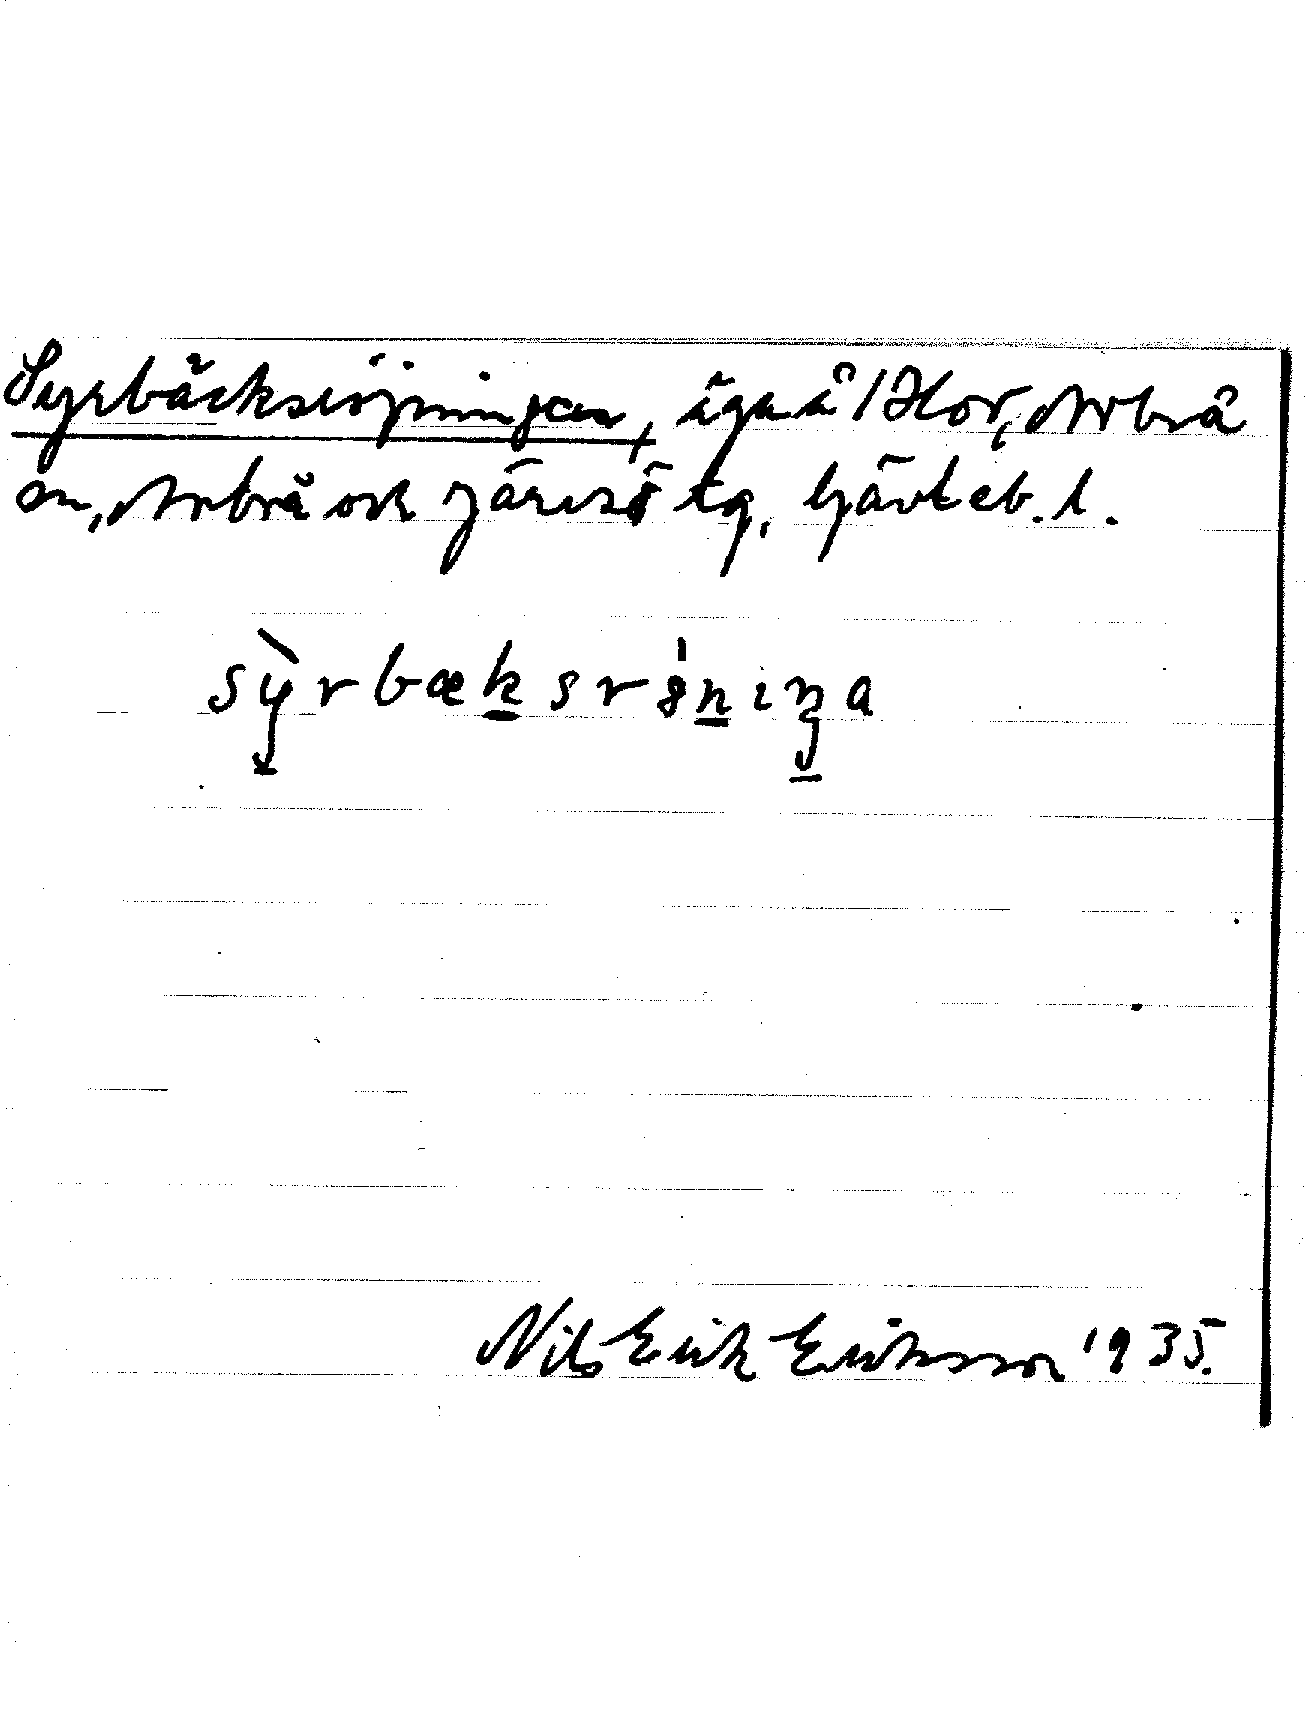 Syrbäcksröjningen, äga å 1 Hov, Arbrå
sn, Arbrå och Järvsö tg, Gävleb. l.
sỳrbæksrönıŋa
Nils Erik Eriksson 1935.